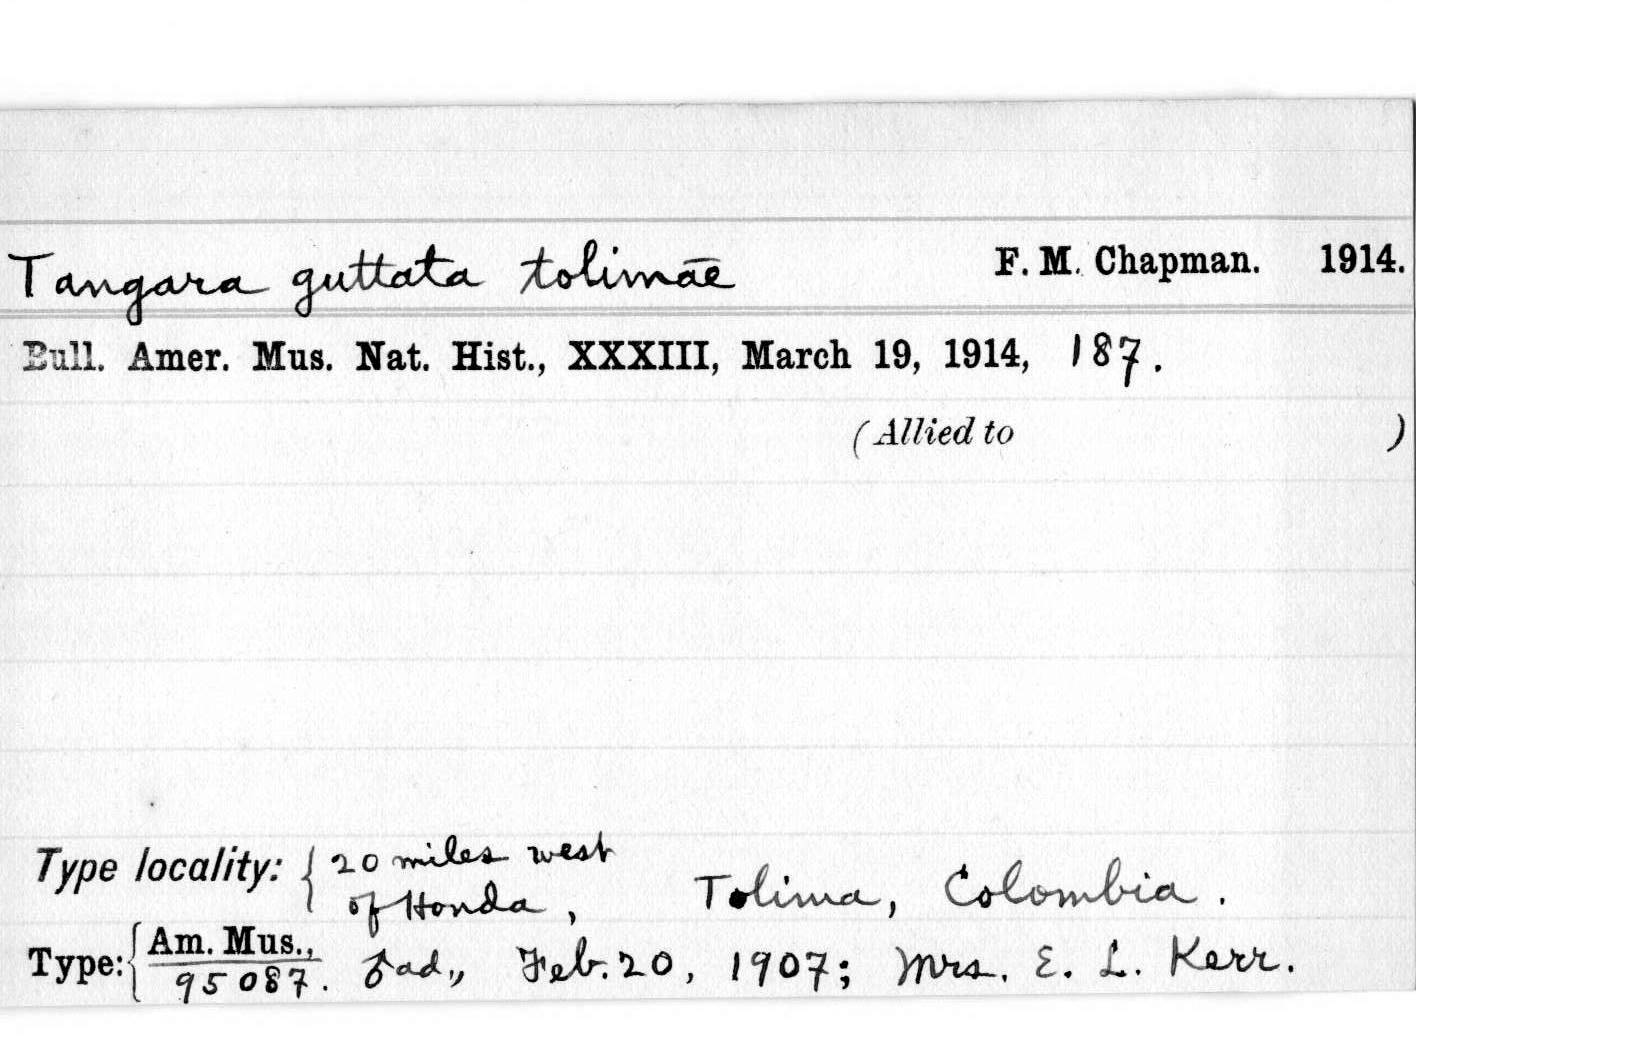 Tangara guttata tolimae F. M. Chapman. 1914.
Bull. Amer. Mus. Nat. Hist., XXXIII, March 19, 1914, 187.
(Allied to )
Type locality: { 20 miles west
of Honda, Tolima, Colombia.
Type: { Am. Mus.,
95087. ♂ ad., Feb. 20, 1907; Mrs. E. L. Kerr.